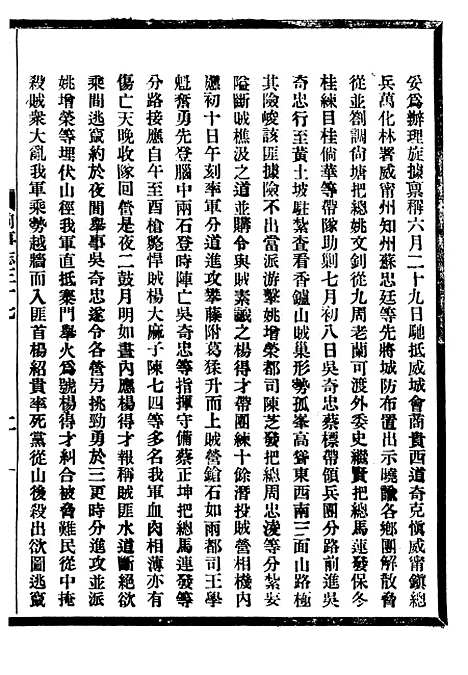 妥爲辦理旋據稟稱六月二十九日馳抵威城會商貴西道奇克愼威甯鎭總
兵萬化林署威甯州知州蘇忠廷等先將城防布置出示曉諭各鄉團解散脅
從並劄調尙塘把總姚文釗從九周老蘭可渡外委史繼賢把總馬蓮發保冬
桂練目桂倘華等帶隊助剿七月初八日吳奇忠蔡標帶領兵團分路前進吳
奇忠行至黃土坡駐紮查看香鑪山賊巢形勢孤峯高聳東西南三面山路極
其險峻該匪據險不出當派游擊姚增榮都司陳芝發把總周忠淩等分紮要
隘斷賊樵汲之道並購令與賊素識之楊得才帶團練十餘潛投賊營相機內
應初十日午刻率軍分道進攻攀藤附葛猱升而上賊營鎗石如雨都司王學
魁奮勇先登腦中兩石登時陣亡吳奇忠等指揮守備蔡正坤把總馬蓮發等
分路接應自午至酉槍斃悍賊楊大麻子陳七四等多名我軍血肉相薄亦有
傷亡天晚收隊回營是夜二鼓月明如晝內應楊得才報稱賊匪水道斷絕欲
乘間逃竄約於夜間舉事吳奇忠遂令各營另挑勁勇於三更時分進攻並派
姚增榮等埋伏山徑我軍直抵寨門舉火爲號楊得才糾合被脅難民從中掩
殺賊衆大亂我軍乘勢越牆而入匪首楊紹貴率死黨從山後殺出欲圖逃竄